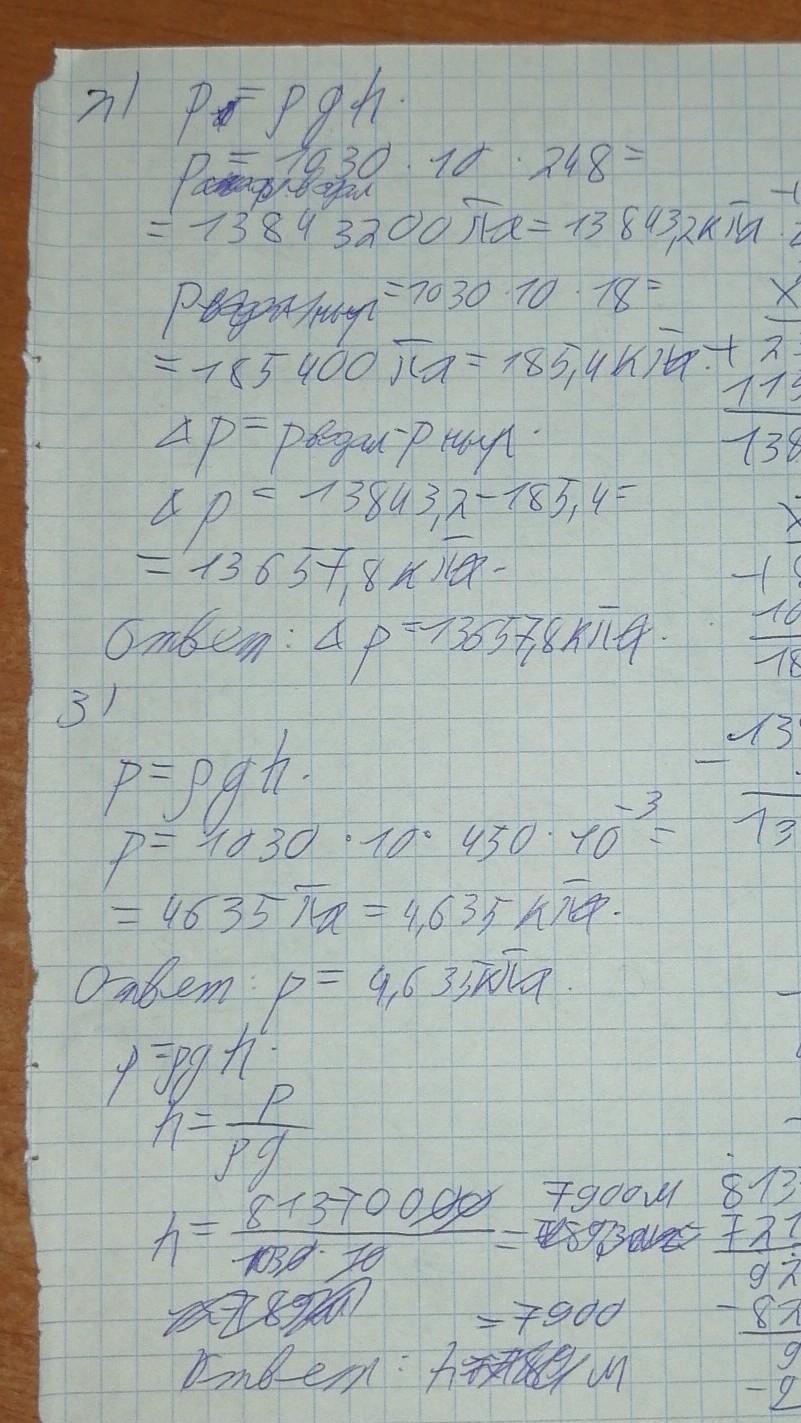 л) p = ρgh.
p = 1030 · 10 · 248 =
= 13843200 Па = 13843,2 кПа
p = 1030 · 10 · 18 =
= 185400 Па = 185,4 кПа.
Δp = pводол - pныр.
Δp = 13843,2 - 185,4 =
= 13657,8 кПа.
Ответ: Δp = 13657,8 кПа.
3)
p = ρgh.
p = 1030 · 10 · 450 · 10⁻³ =
= 4635 Па = 4,635 кПа.
Ответ: p = 4,635 кПа.
p = ρgh.
h = p / ρg
h = 81370000 / 1030 · 10 = 7900 м
= 7900
Ответ: h м
+ 2
115
138
10
18
- 13
13
813
721
92
- 82
9
- 9